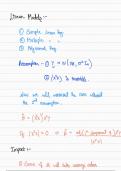 Linear Models :-
① Simple Linear Reg.
② Multiple " "
③ Polynomial Reg.
Assumption - ① Y ~ N(Xβ, σ² Iₙ)
② (X'X) is invertible.
Now we will understand the case without
the 2nd assumption.
β̂ = (X'X)⁻¹ X'Y
If |X'X| = 0 ⇒
Impact :-
① Some β̂ᵢ will take